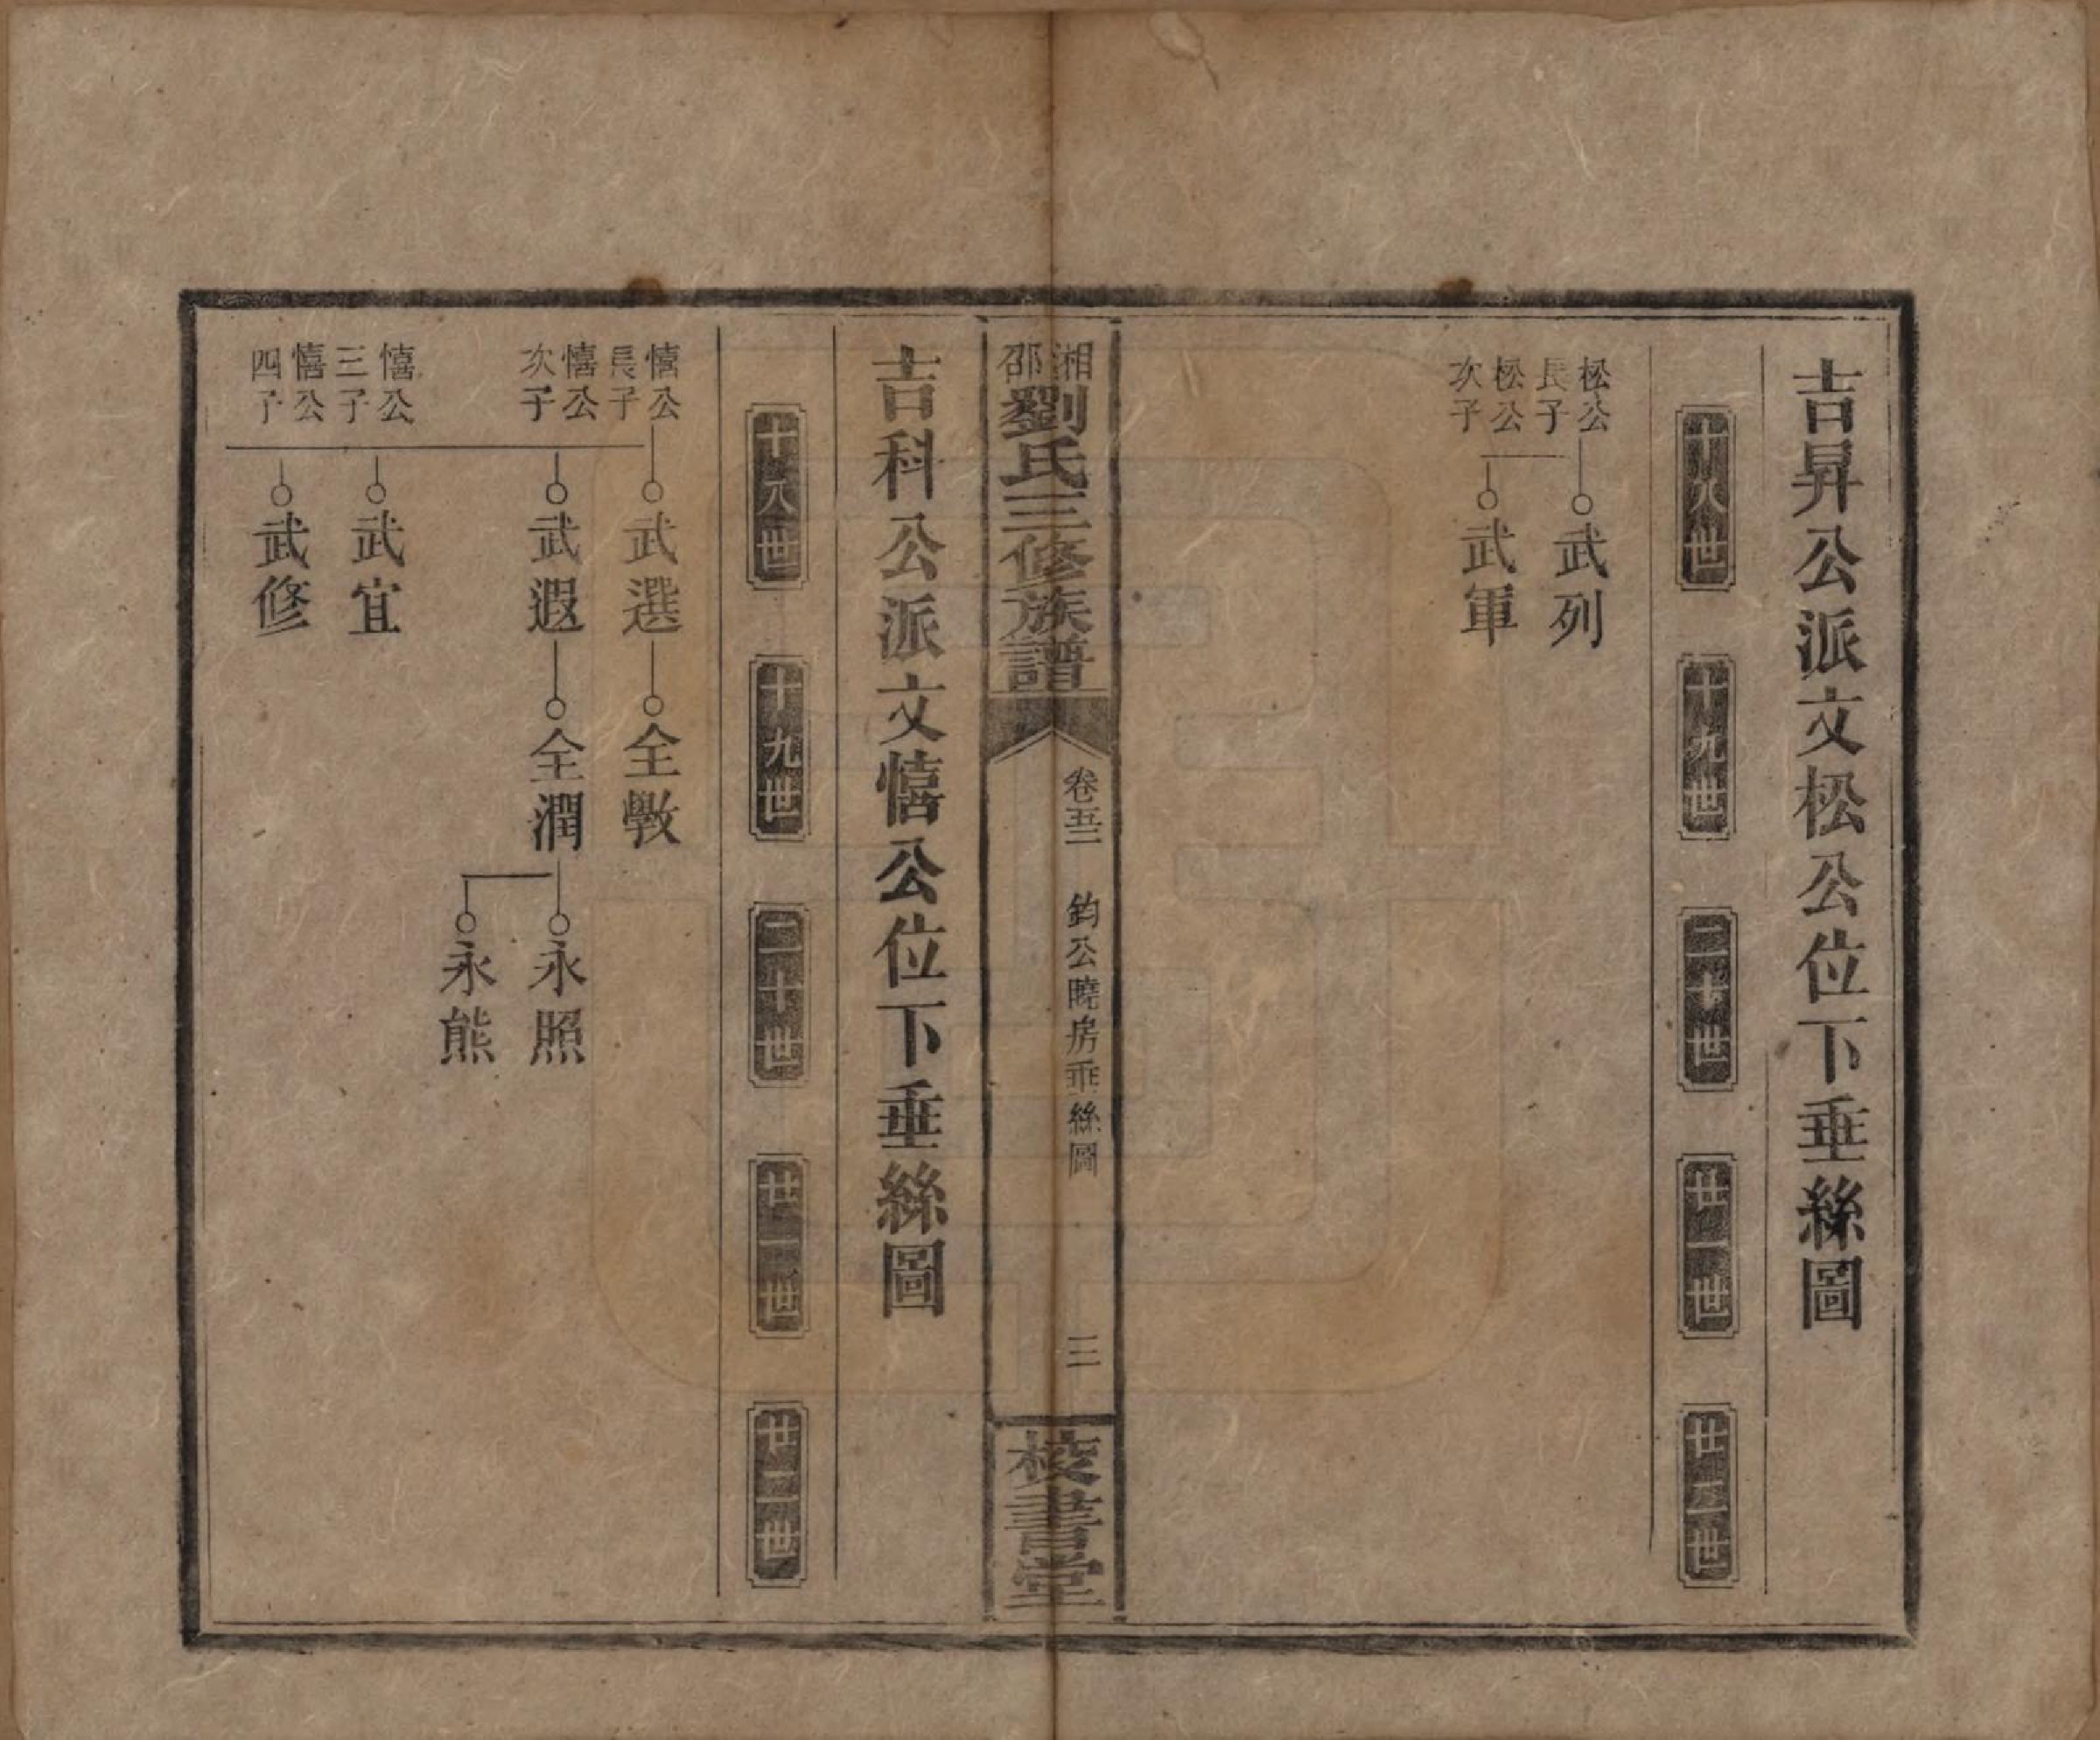 吉昇公派文松公位下垂絲圖
十八世
十九世
二十世
廿一世
廿二世
松公
長子
武列
松公
次子
武軍
湘邵劉氏三修族譜
卷五二
鈞公曉房垂絲圖
三
校書堂
吉科公派文憘公位下垂絲圖
十八世
十九世
二十世
廿一世
廿二世
憘公
長子
武選
全斆
憘公
次子
武遐
全潤
永照
永熊
憘公
三子
武宜
憘公
四子
武修